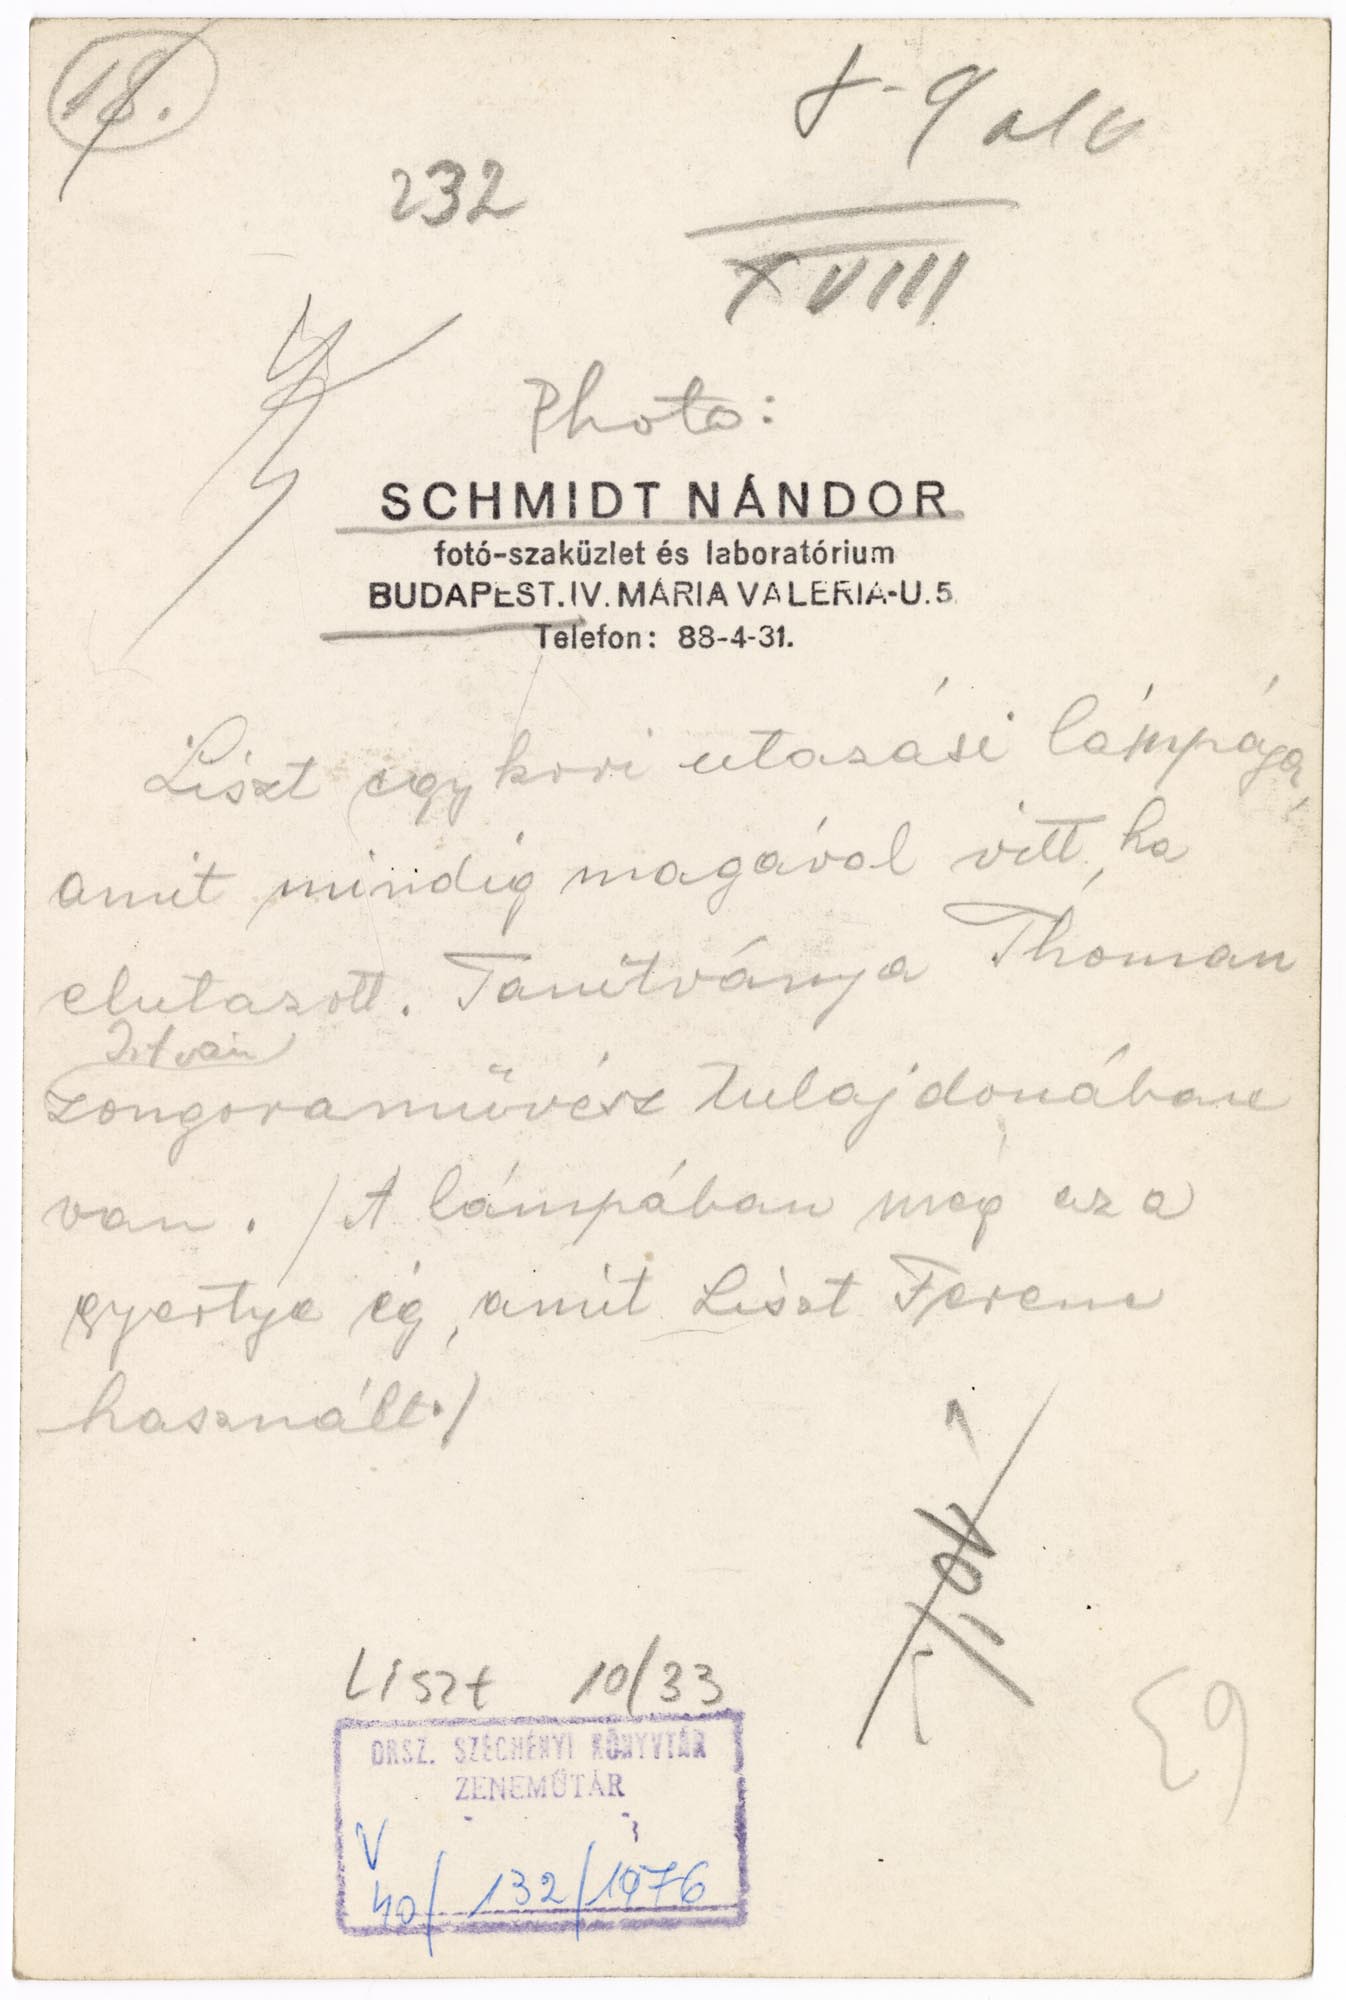 18.
8-9 alv
232
XVIII
Photo:
SCHMIDT NÁNDOR
fotó-szaküzlet és laboratórium
BUDAPEST. IV. MÁRIA VALÉRIA-U. 5.
Telefon: 88-4-31.
Liszt egykori utazási lámpája,
amit mindig magával vitt, ha
elutazott. Tanítványa Thoman
István
zongoraművész tulajdonában
van. /A lámpában még az a
gyertya ég, amit Liszt Ferenc
használt./
Liszt 10/33
ORSZ. SZÉCHÉNYI KÖNYVTÁR
ZENEMŰTÁR
V
40/132/1976